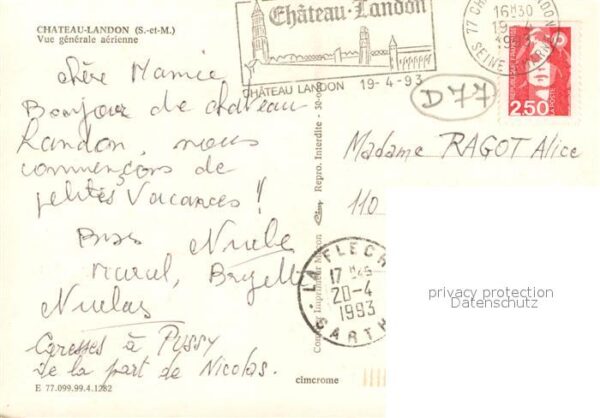 CHATEAU-LANDON (S.-et-M.)
Vue générale aérienne
Château-Landon
CHÂTEAU LANDON 19-4-93
77 CHATEAU LANDON
16H30
19-4
1993
SEINE ET MARNE
RÉPUBLIQUE FRANÇAISE
2,50
LA POSTE
D77
chère Mamie
Bonjour de chateau
Landon, nous
commençons de
petites vacances !
Bises
Marcel,
Nicolas
Caresses à PUSSY
de la part de Nicolas.
E 77.099.99.4.1282
Repro. Interdite
Combier Imprimeur Macon
cimcrome
Madame RAGOT Alice
110
LA FLECHE
17 H45
20-4
1993
SARTHE
privacy protection
Datenschutz